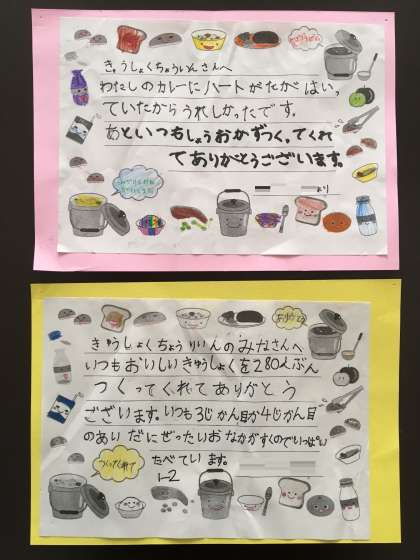 きゅうしょくちょういんさんへ
わたしのカレーにハートがたがはいっ
ていたからうれしかったです。
あといつもしょうおかずつくってくれ
てありがとうございます。
より
ありがとう
きゅうしょくちょうりいんのみなさんへ
いつもおいしいきゅうしょくを280人ぶん
つくってくれてありがとう
ございます。いつも3じかん目か4じかん目
のあいだにぜったいおなかがすくのでいっぱい
たべています。
つくってくれて
1-2